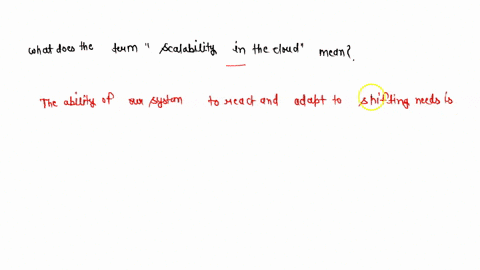 what does the term " scalability in the cloud" mean?.
The ability of our system to react and adapt to shifting needs is